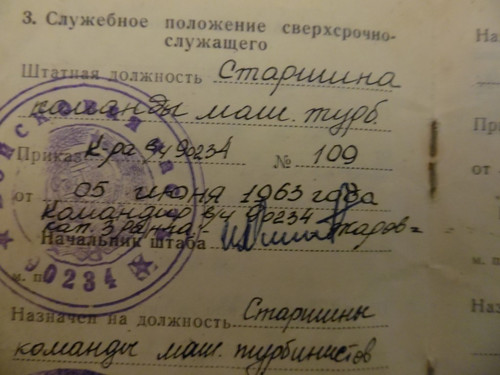 3. Служебное положение сверхсрочно-
служащего
Штатная должность Старшина
команды маш. турб.
Приказ К-ра в/ч 90234 № 109
от 05 июня 1963 года
Командир в/ч 90234
кап. 3 ранга
Начальник штаба
м. п.
90234
Назначен на должность Старшины
команды маш. турбинистов